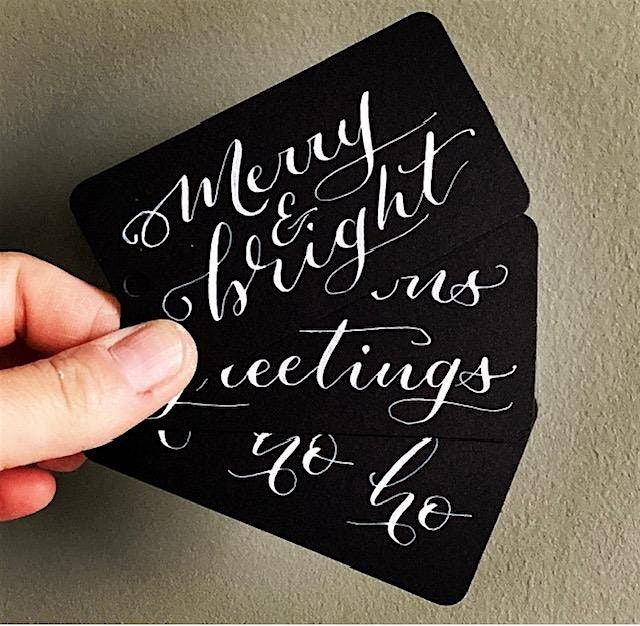 Merry
&
bright
ns
greetings
ho ho